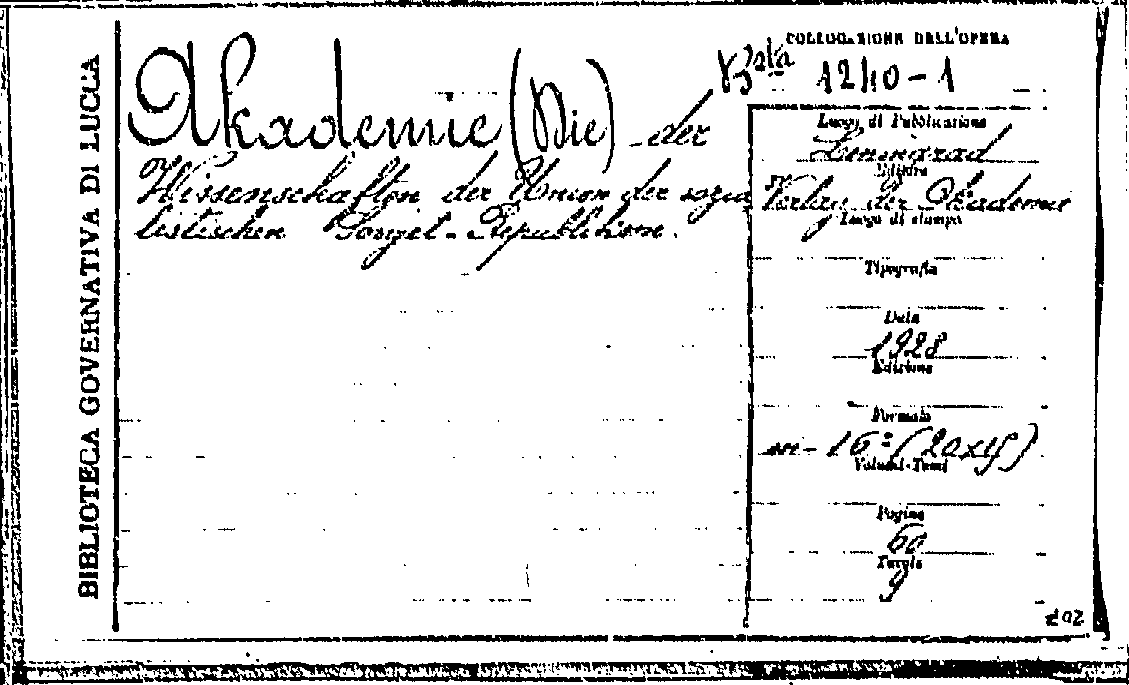 BIBLIOTECA GOVERNATIVA DI LUCCA
COLLOCAZIONE DELL'OPERA
Bta 12/10-1
Akademie (Die) der
Wissenschaften der Union der sozia
listischen Sowjet-Republiken.
Luogo di Pubblicazione
Leningrad
Editore
Verlag der Akademie
Luogo di stampa
Tipografia
Data
1928
Edizione
Formato
in-16º (20x15)
Volumi-Tomi
Pagine
60
Tavole
9